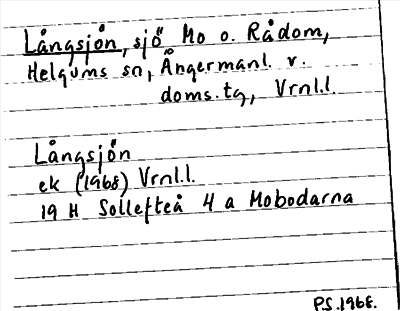 Långsjön, sjö Mo o. Rådom,
Helgums sn, Ångermanl. v.
doms.tg, Vrnl.l.
Långsjön
ek (1968) Vrnl.l.
19 H Sollefteå 4 a Mobodarna
P.S. 1968.